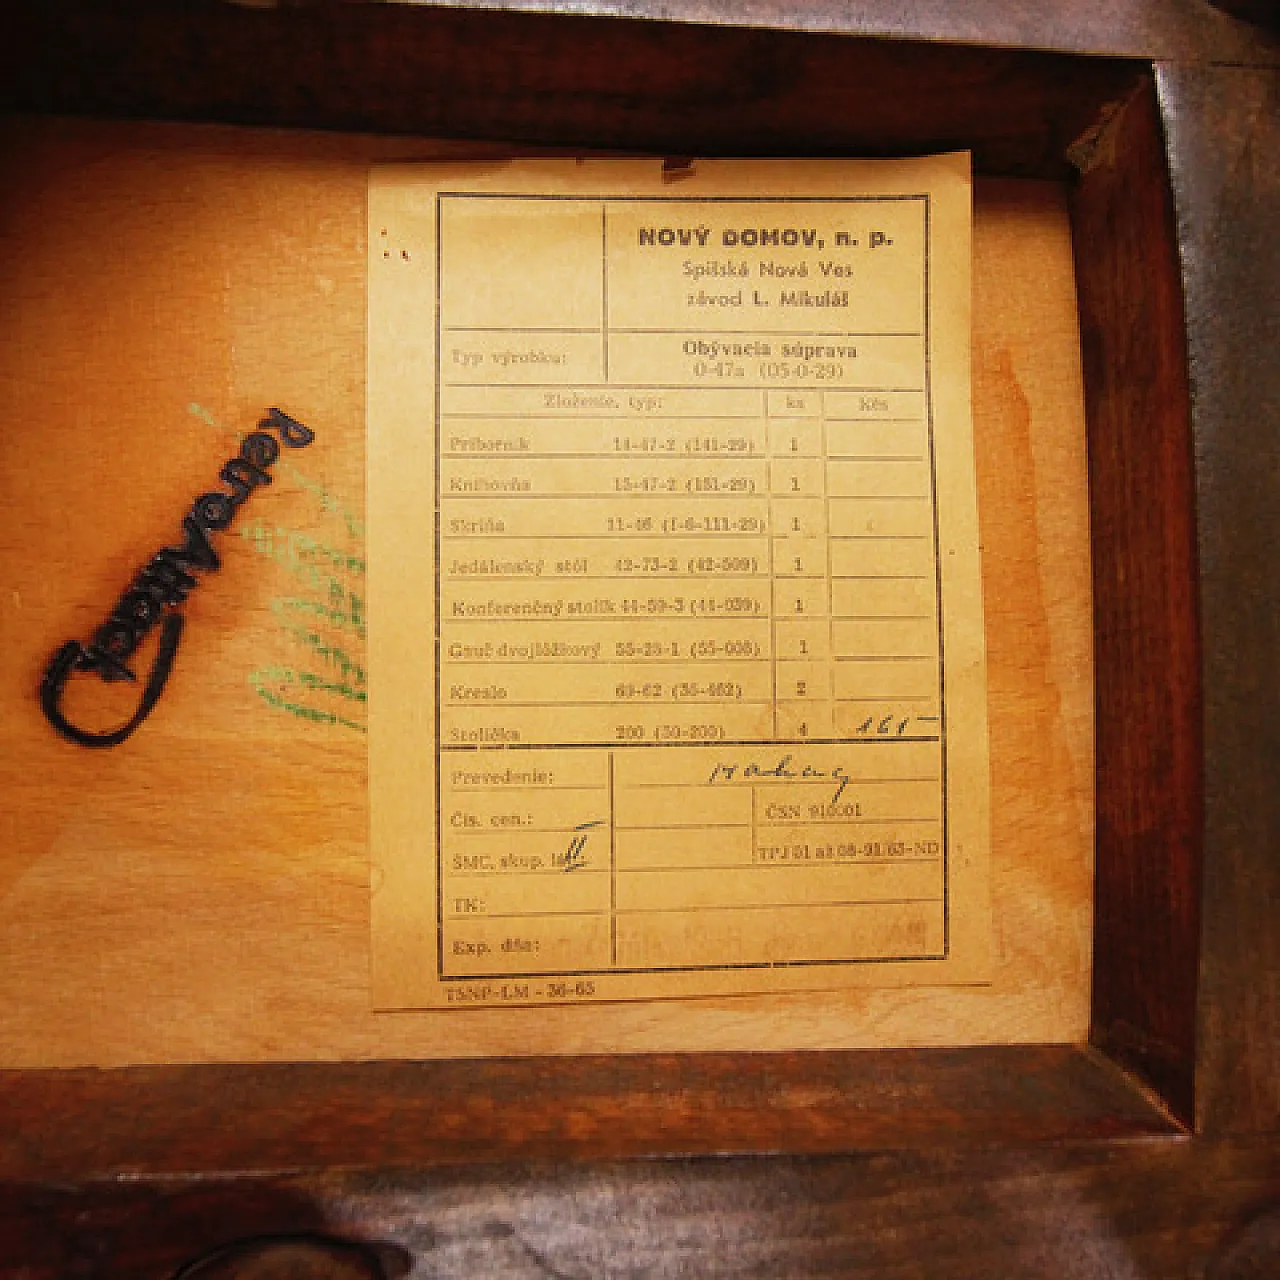 NOVÝ DOMOV, n. p.
Spišská Nová Ves
závod L. Mikuláš
Typ výrobku: Obývacia súprava
0-47a (05-0-29)
Zloženie, typ: ks Kčs
Príborník 14-47-2 (141-29) 1
Knihovňa 15-47-2 (151-29) 1
Skriňa 11-46 (1-6-111-29) 1
Jedálenský stôl 42-73-2 (42-509) 1
Konferenčný stolík 44-59-3 (44-039) 1
Gauč dvojlôžkový 55-28-1 (55-008) 1
Kreslo 69-62 (36-462) 2
Stolička 200 (30-200) 4 161-
Prevedenie: mahag
Čís. cen.: ČSN 910001
ŠMC, skup. lát. II TPJ 01 až 08-91/63-ND
TK:
Exp. dňa:
TSNP-LM - 36-65
RetroAttack